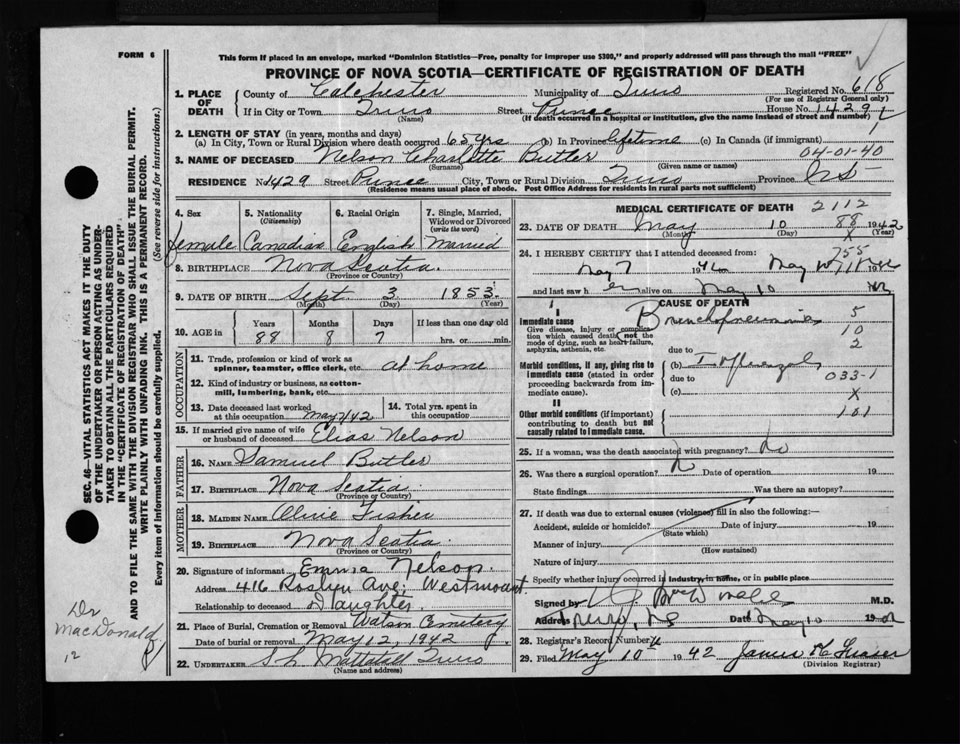 FORM 6
This form if placed in an envelope, marked "Dominion Statistics—Free, penalty for improper use $300," and properly addressed will pass through the mail "FREE"
PROVINCE OF NOVA SCOTIA—CERTIFICATE OF REGISTRATION OF DEATH
1. PLACE OF DEATH
County of Colchester Municipality of Truro Registered No. 618
(For use of Registrar General only)
If in City or Town Truro Street Prince House No. 1429
(Name) (If death occurred in a hospital or institution, give the name instead of street and number)
2. LENGTH OF STAY (in years, months and days)
(a) In City, Town or Rural Division where death occurred 65 yrs (b) In Province lifetime (c) In Canada (if immigrant)
04-01-40
3. NAME OF DECEASED Nelson Charlotte Butler
(Surname) (Given name or names)
RESIDENCE No. 1429 Street Prince City, Town or Rural Division Truro Province N.S.
(Residence means usual place of abode. Post Office Address for residents in rural parts not sufficient)
4. Sex female
5. Nationality (Citizenship) Canadian
6. Racial Origin English
7. Single, Married, Widowed or Divorced (write the word) Married
8. BIRTHPLACE Nova Scotia
(Province or Country)
9. DATE OF BIRTH Sept. 3 1853
(Month) (Day) (Year)
10. AGE in Years Months Days If less than one day old
88 8 7 hrs. or min.
OCCUPATION
11. Trade, profession or kind of work as spinner, teamster, office clerk, etc. at home
12. Kind of industry or business, as cotton-mill, lumbering, bank, etc.
13. Date deceased last worked at this occupation May 7/42
14. Total yrs. spent in this occupation
15. If married give name of wife or husband of deceased Elias Nelson
FATHER
16. NAME Samuel Butler
17. BIRTHPLACE Nova Scotia
(Province or Country)
MOTHER
18. MAIDEN NAME Olive Fisher
19. BIRTHPLACE Nova Scotia
(Province or Country)
20. Signature of informant Emma Nelson
Address 416 Roslyn Ave; Westmount
Relationship to deceased Daughter
21. Place of Burial, Cremation or Removal Watson Cemetery
Date of burial or removal May 12, 1942
22. UNDERTAKER Truro
(Name and address)
MEDICAL CERTIFICATE OF DEATH 2112
23. DATE OF DEATH May 10 88 1942
(Month) (Day) (Year)
X
24. I HEREBY CERTIFY that I attended deceased from: 755
May 7 1942 May 10 19
and last saw h er alive on May 10
CAUSE OF DEATH
I
Immediate cause
Give disease, injury or complication which caused death, not the mode of dying, such as heart failure, asphyxia, asthenia, etc.
Bronchopneumonia 5
10
2
due to
Morbid conditions, if any, giving rise to immediate cause (stated in order proceeding backwards from immediate cause).
(b) Influenza
due to 033-1
(c) X
II
Other morbid conditions (if important) contributing to death but not causally related to immediate cause.
101
25. If a woman, was the death associated with pregnancy? No
26. Was there a surgical operation? Date of operation 19
State findings Was there an autopsy?
27. If death was due to external causes (violence) fill in also the following:—
Accident, suicide or homicide? Date of injury 19
(State which)
Manner of injury
(How sustained)
Nature of injury
Specify whether injury occurred in industry, in home, or in public place
Signed by M.D.
Address Truro, NS Date May 10 19
28. Registrar's Record Number
29. Filed May 10th 1942 James
(Division Registrar)
SEC. 46—VITAL STATISTICS ACT MAKES IT THE DUTY OF THE UNDERTAKER OR PERSON ACTING AS UNDERTAKER TO OBTAIN ALL THE PARTICULARS REQUIRED IN THE "CERTIFICATE OF REGISTRATION OF DEATH" AND TO FILE THE SAME WITH THE DIVISION REGISTRAR WHO SHALL ISSUE THE BURIAL PERMIT.
WRITE PLAINLY WITH UNFADING INK. THIS IS A PERMANENT RECORD.
Every item of information should be carefully supplied. (See reverse side for instructions.)
Dr
MacDonald
12